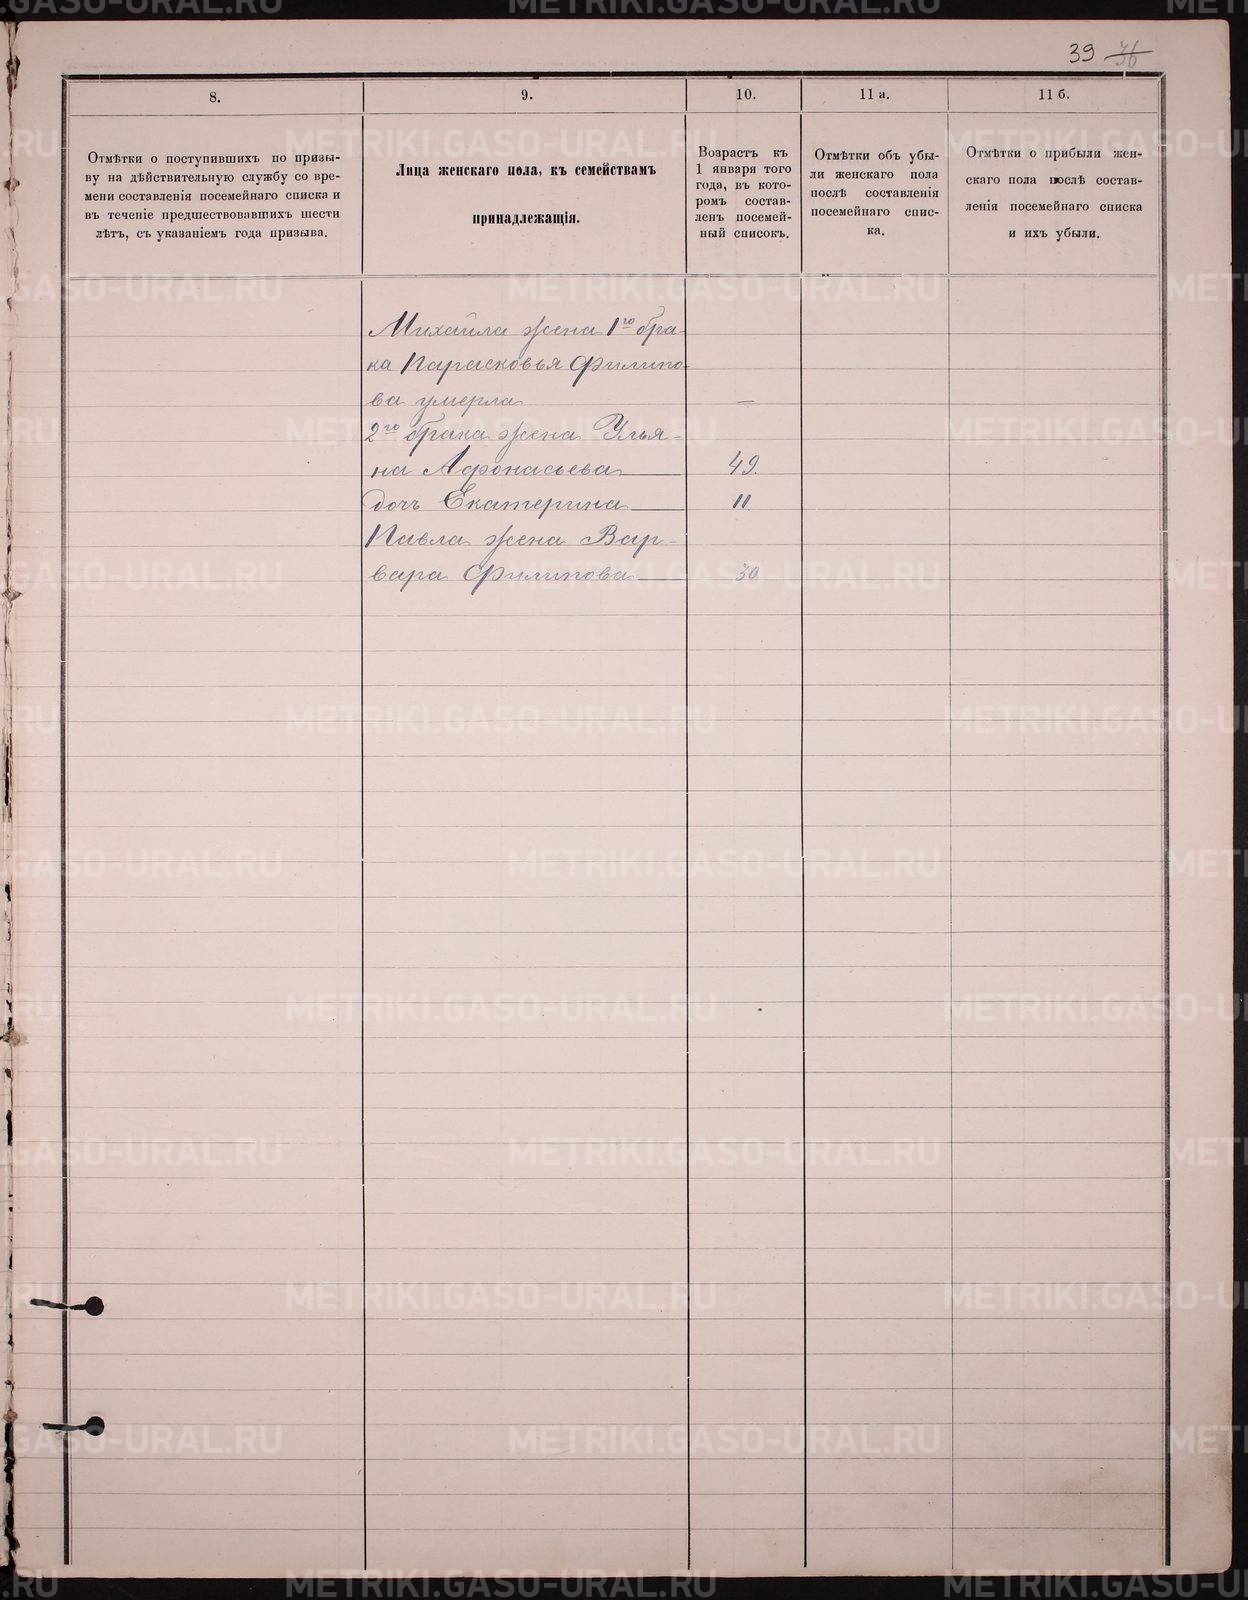 39 36
8.
9.
10.
11 а.
11 б.
Отмѣтки о поступившихъ по призы-
ву на дѣйствительную службу со вре-
мени составленія посемейнаго списка и
въ теченіе предшествовавшихъ шести
лѣтъ, съ указаніемъ года призыва.
Лица женскаго пола, къ семействамъ
принадлежащія.
Возрастъ къ
1 января того
года, въ кото-
ромъ состав-
ленъ посемей-
ный списокъ.
Отмѣтки объ убы-
ли женскаго пола
послѣ составленія
посемейнаго спис-
ка.
Отмѣтки о прибыли жен-
скаго пола послѣ состав-
ленія посемейнаго списка
и ихъ убыли.
Михаила жена 1го бра-
ка Парасковья Филипо-
ва умерла —
2го брака жена Улья-
на Афонасьева 49.
дочь Екатерина 11.
Павла жена Вар-
вара Филипова 30
METRIKI.GASO-URAL.RU